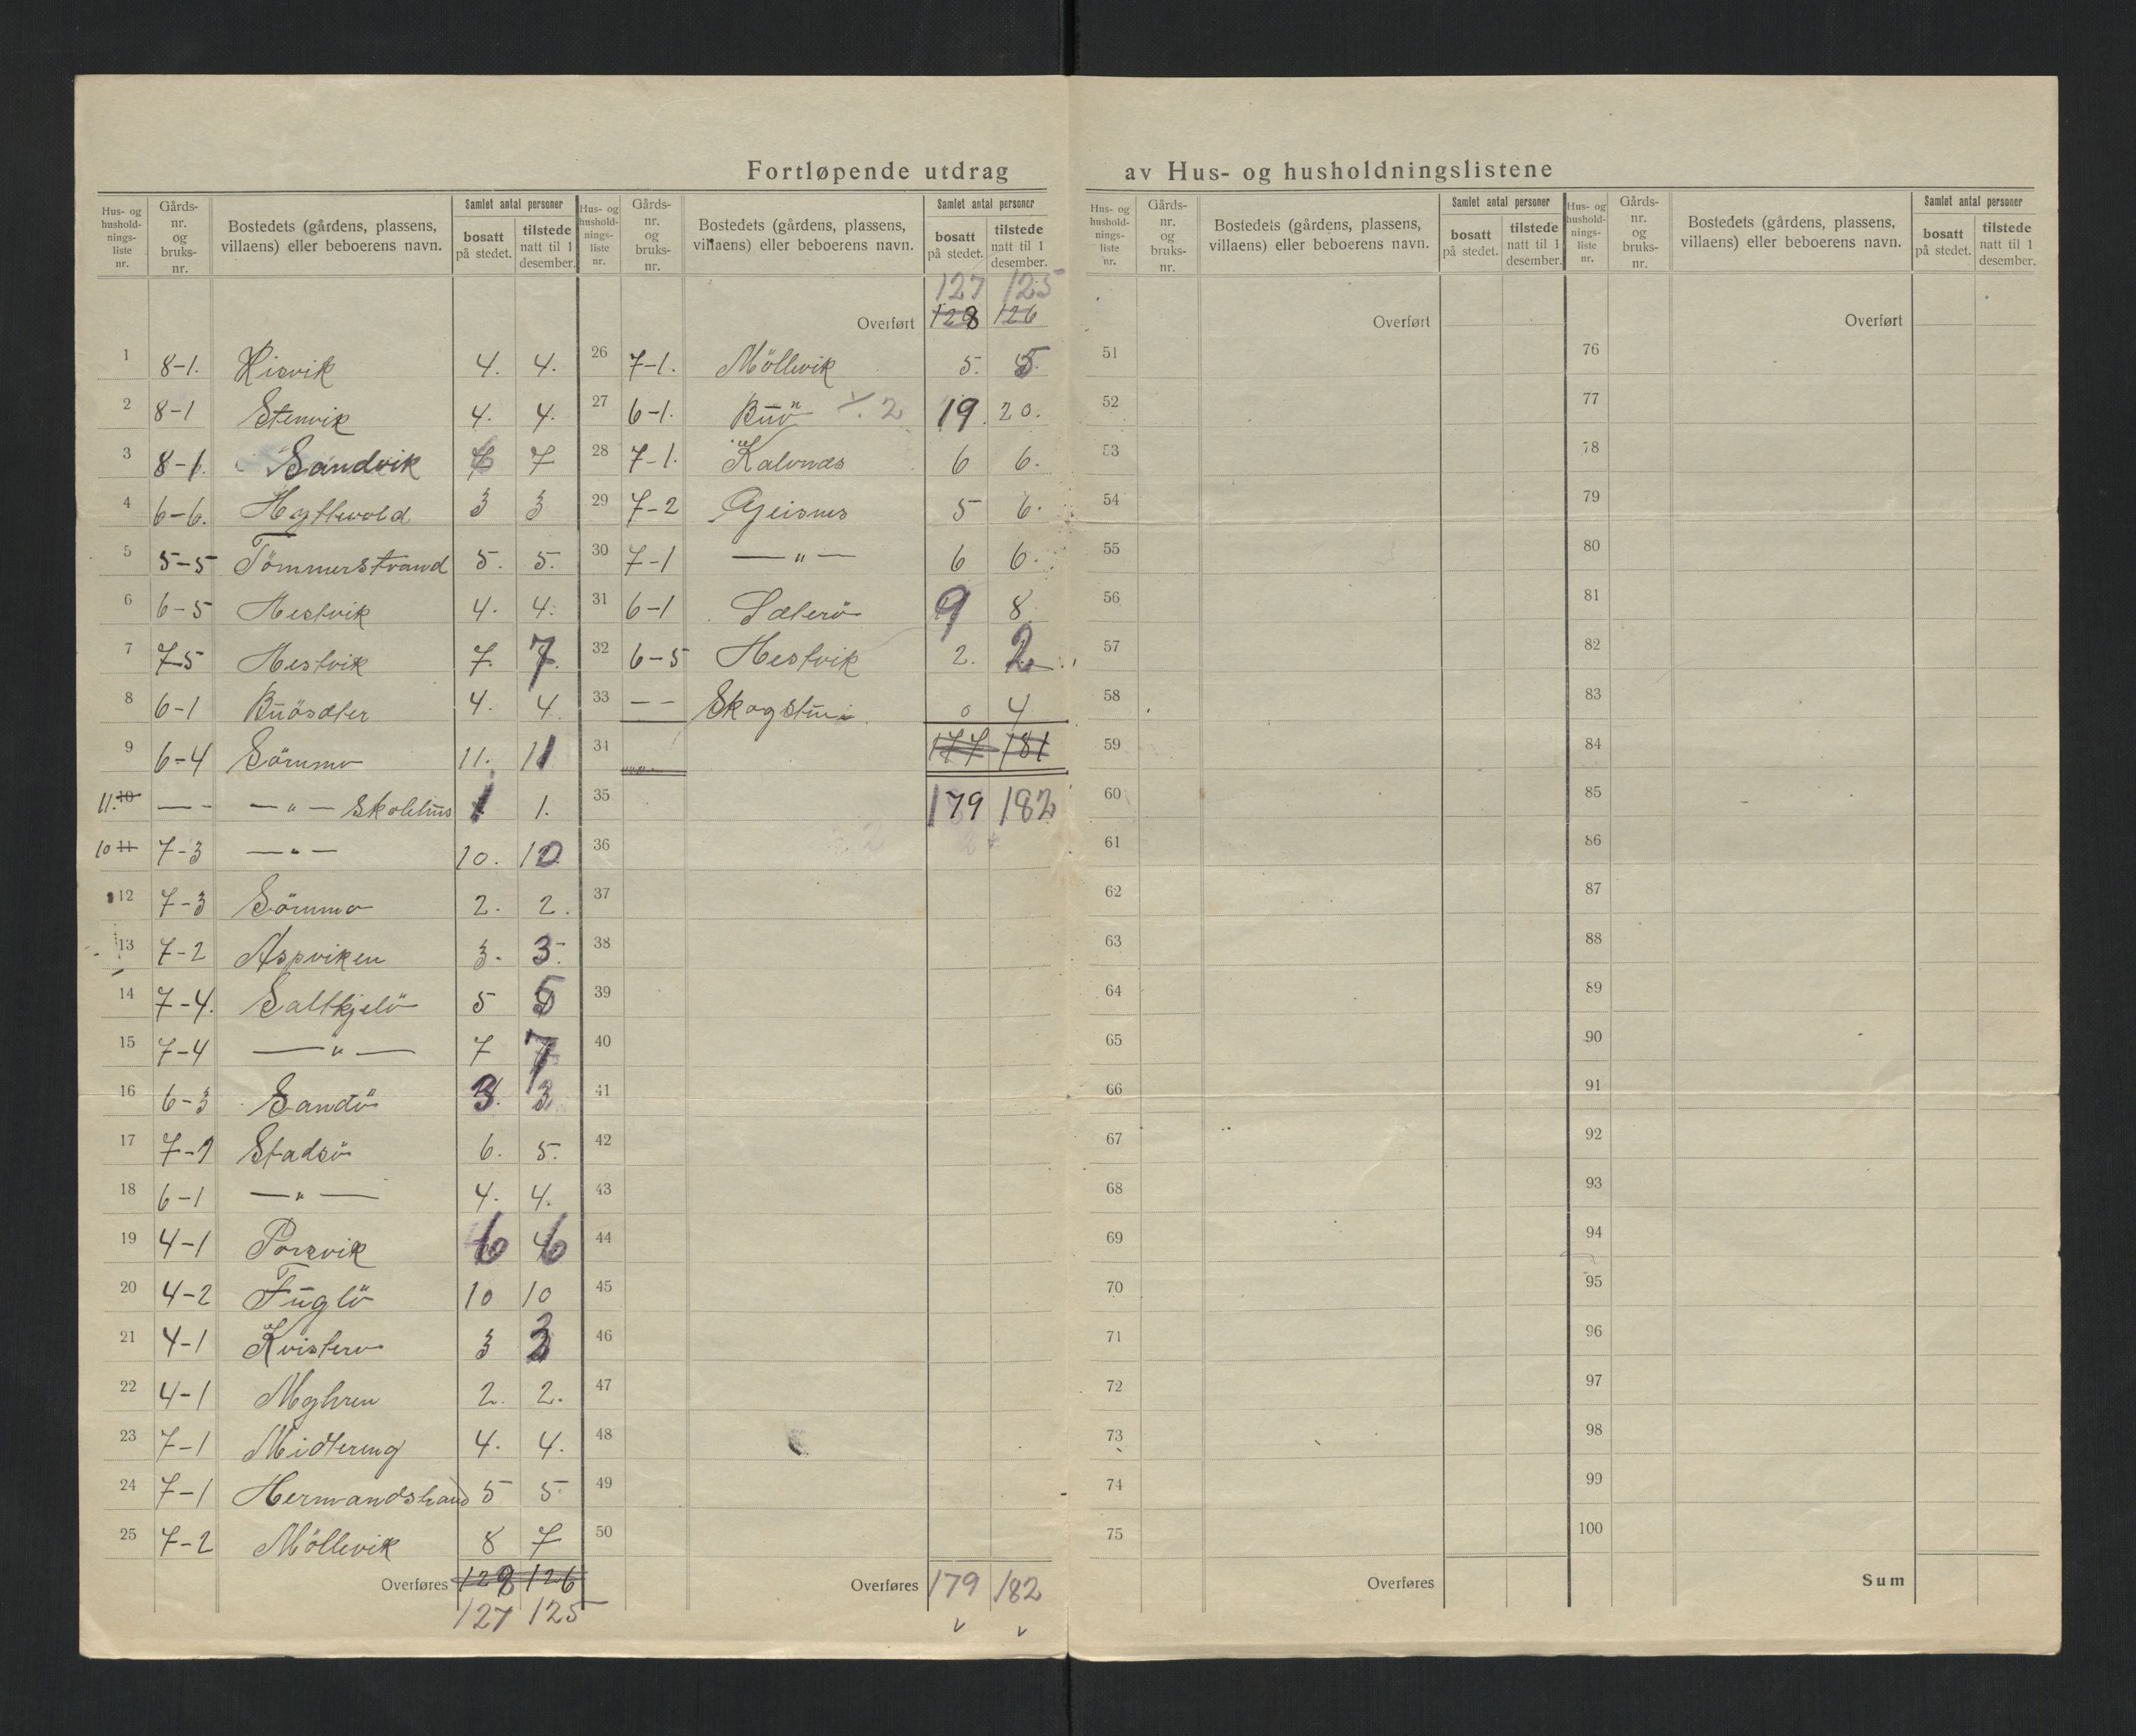 Fortløpende utdrag av Hus- og husholdningslistene
Hus- og hushold- nings- liste nr. Gårds- nr. og bruks- nr. Bostedets (gårdens, plassens, villaens) eller beboerens navn. Samlet antal personer bosatt på stedet. tilstede natt til 1 desember.
1 8-1. Hisvik 4. 4.
2 8-1 Stenvik 4. 4.
3 8-1. Sandvik 7
4 6-6. 3 3
5 5-5 Tömmerstrand 5. 5.
6 6-5 Hestvik 4. 4.
7 7-5 Hestvik 7. 7.
8 6-1 Buösæter 4. 4
9 6-4 Sörmmo 11. 11
11. 10 — - — " — Skolehus 1 1.
10 11 7-3 — " — 10. 10
12 7-3 Sörmmo 2. 2.
13 7-2 Aspviken 3. 3.
14 7-4. Saltkjelö 5 5
15 7-4 — " — 7 7
16 6-3 Sandö 3. 3
17 7-1 Stadsö 6. 5.
18 6-1 — " — 4. 4.
19 4-1 Porsvik 6 6
20 4-2 Fuglö 10 10
21 4-1 Kvisterö 3 3
22 4-1 2. 2.
23 7-1 Midtereng 4. 4.
24 7-1 5 5
25 7-2 Möllevik 8 7
Overføres 128 126
127 125
Hus- og hushold- nings- liste nr. Gårds- nr. og bruks- nr. Bostedets (gårdens, plassens, villaens) eller beboerens navn. Samlet antal personer bosatt på stedet. tilstede natt til 1 desember.
127 125
Overført 128 126
26 7-1. Möllevik 5. 5.
27 6-1. Buö ÷ 2 19. 20.
28 7-1. Kalvnæs 6 6.
29 7-2 Gjeisnes 5 6.
30 7-1 — " — 6 6.
31 6-1 Sæterö 9 8
32 6-5 Hestvik 2. 2
33 — — Skogstui 0 4
34 177 181
35 179 182
36
37
38
39
40
41
42
43
44
45
46
47
48
49
50
Overføres 179 182
v v
Hus- og hushold- nings- liste nr. Gårds- nr. og bruks- nr. Bostedets (gårdens, plassens, villaens) eller beboerens navn. Samlet antal personer bosatt på stedet. tilstede natt til 1 desember.
Overført
51
52
53
54
55
56
57
58
59
60
61
62
63
64
65
66
67
68
69
70
71
72
73
74
75
Overføres
Hus- og hushold- nings- liste nr. Gårds- nr. og bruks- nr. Bostedets (gårdens, plassens, villaens) eller beboerens navn. Samlet antal personer bosatt på stedet. tilstede natt til 1 desember.
Overført
76
77
78
79
80
81
82
83
84
85
86
87
88
89
90
91
92
93
94
95
96
97
98
99
100
Sum